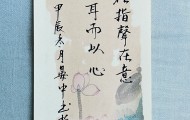 在指聲在意
耳而以心
甲辰冬月